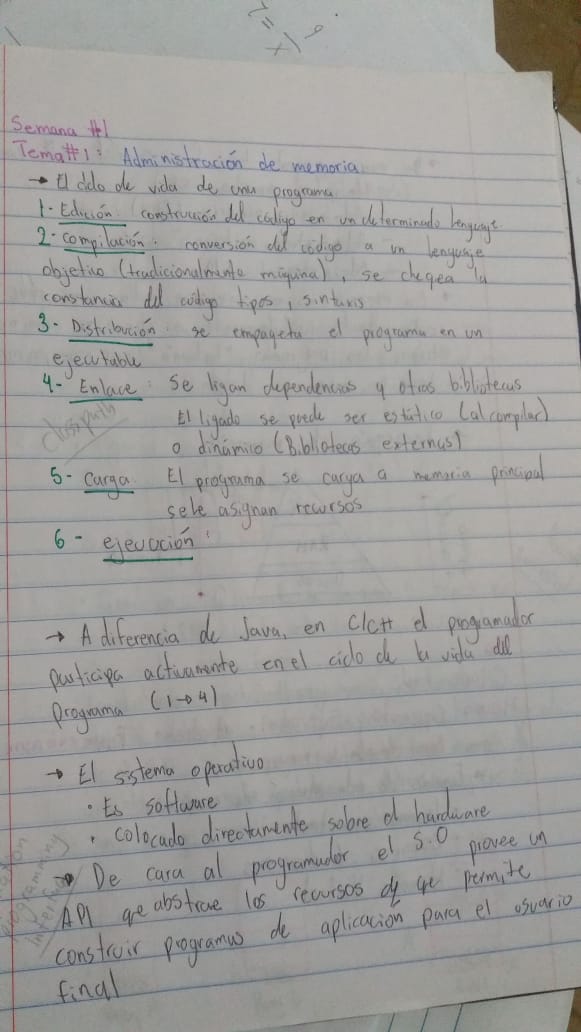 Semana #1
Tema #1: Administración de memoria
→ El ciclo de vida de una programa
1- Edición: construcción del código en un determinado lenguaje
2- Compilación: conversión del código a un lenguaje
objetivo (tradicionalmente máquina), se cheqea la
constancia del código tipos, sintaxis
3- Distribución: se empaqueta el programa en un
ejecutable
4- Enlace: Se ligan dependencias y otras bibliotecas
classpath
El ligado se puede ser estático (al compilar)
o dinámico (Bibliotecas externas)
5- Carga: El programa se carga a memoria principal
sele asignan recursos
6- ejecución:
→ A diferencia de Java, en C/C++ el programador
participa activamente en el ciclo de la vida del
programa (1→4)
→ El sistema operativo
• Es software
• colocado directamente sobre el hardware
→ De cara al programador el S.O provee un
API qe abstrae los recursos qe permite
construir programas de aplicación para el usuario
final
programming